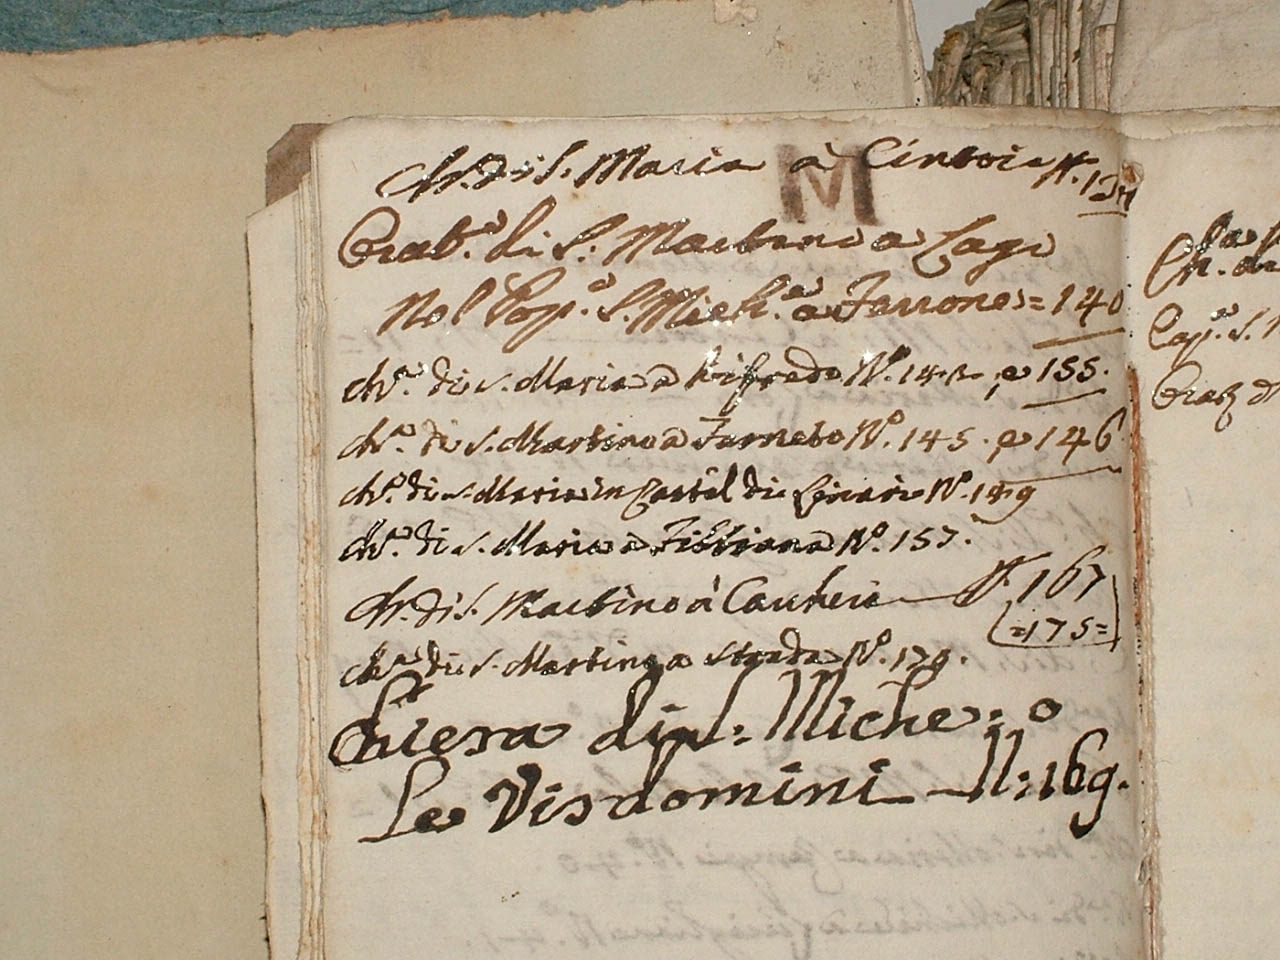 M
Ch.ª di S. Maria à Cintoia N. 134
Orat.º di S: Martino a Lagi
Nel Pop.º S. Mich.e a Farrone = 140
Ch.ª di S. Maria a Rifredo N.º e 155.
Ch.ª di S. Martino a Farneto N.º 145. e 146
Ch.ª di S. Maria in Castel di Linari N.º 149
Ch.ª di S. Maria a Fibbiana N.º 157.
Ch. di S. Martino à N. 167
=175=
Ch.ª di S. Martino a Strada N.º 179.
Chiesa di S: Miche:
Le Visdomini N: 169.